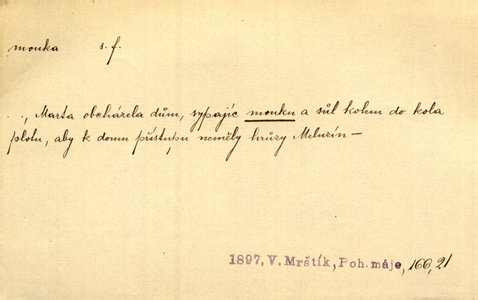 mouka s. f.
.., Marta obcházela dům, sypajíc mouku a sůl kolem do kola
plotu, aby k domu přístupu neměly hrůzy Meluzín —
1897, V. Mrštík, Poh. máje, 166, 21